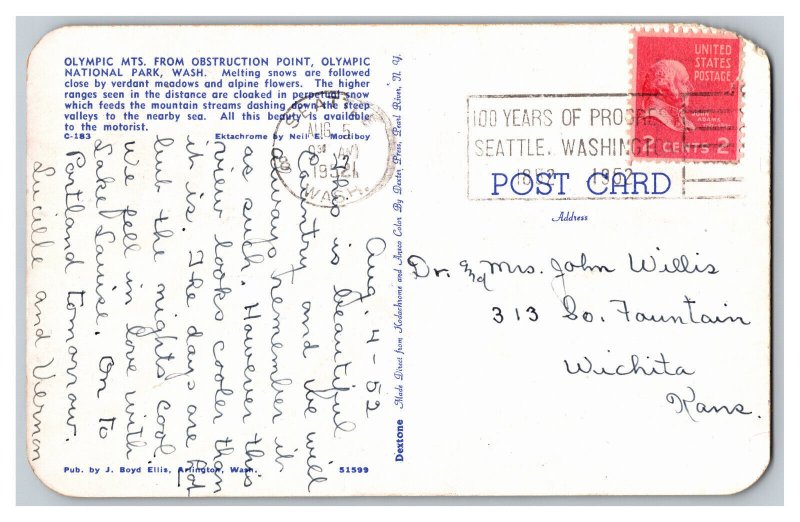 OLYMPIC MTS. FROM OBSTRUCTION POINT, OLYMPIC
NATIONAL PARK, WASH. Melting snows are followed
close by verdant meadows and alpine flowers. The higher
ranges seen in the distance are cloaked in perpetual snow
which feeds the mountain streams dashing down the steep
valleys to the nearby sea. All this beauty is available
to the motorist.
C-183 Ektachrome by Neil E. Moctiboy
SEATTLE
AUG 5
930 AM
1952
WASH.
100 YEARS OF PROGRESS
SEATTLE, WASHINGTON
1852 1952
UNITED
STATES
POSTAGE
JOHN
ADAMS
2 CENTS 2
POST CARD
Address
Dr. and Mrs. John Willis
313 So. Fountain
Wichita
Kans.
Aug. 4-52
This is beautiful
Country and we will
always remember it
as such. However this
view looks cooler than
it is. The days are hot
but the nights cool.
We fell in love with
Lake Louise. On to
Portland tomorrow.
Lucille and Vernon
Dextone Made Direct from Kodachrome and Ansco Color By Dexter Press, Pearl River, N. Y.
Pub. by J. Boyd Ellis, Arlington, Wash. 51599